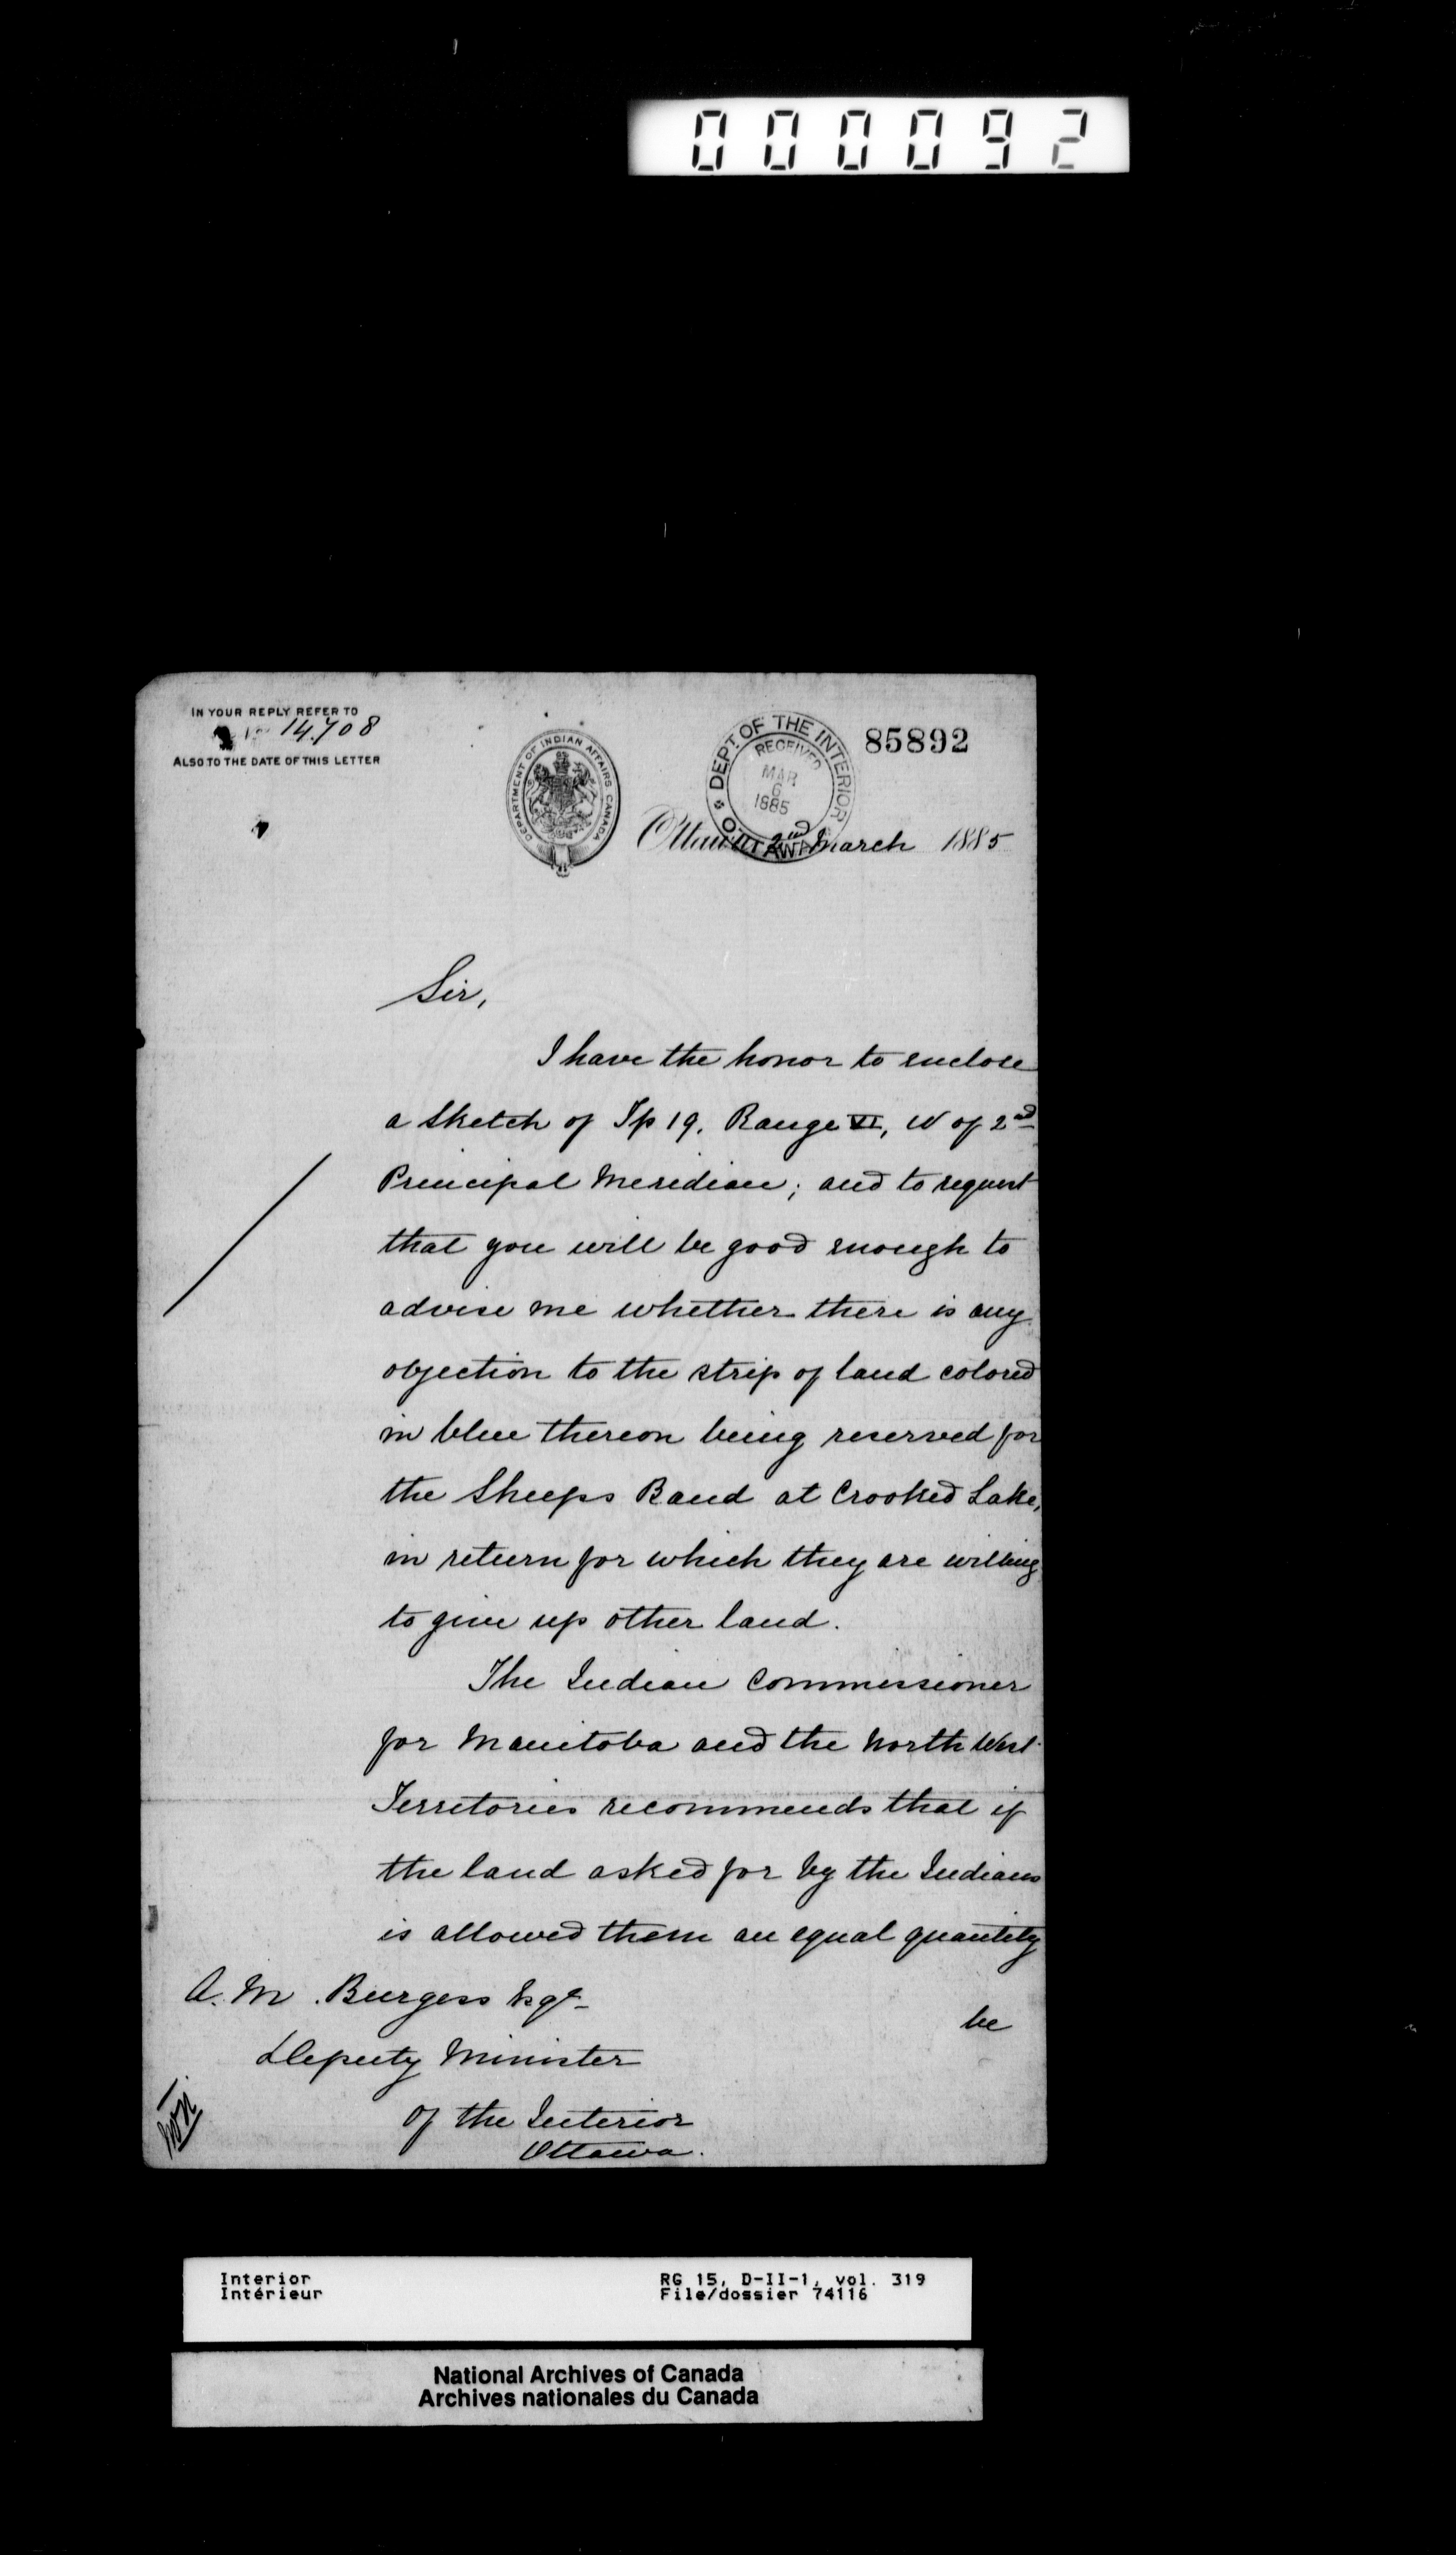 000092
IN YOUR REPLY REFER TO
14.708
ALSO TO THE DATE OF THIS LETTER
DEPARTMENT OF INDIAN AFFAIRS CANADA
DEPT. OF THE INTERIOR
RECEIVED
MAR
6
1885
OTTAWA
85892
Ottawa 2nd March 1885
Sir,
I have the honor to enclose
a sketch of Tp 19. Range VI, W of 2nd
Principal Meridian; and to request
that you will be good enough to
advise me whether there is any
objection to the strip of land colored
in blue thereon being reserved for
the Sheeps Band at Crooked Lake,
in return for which they are willing
to give up other land.
The Indian Commissioner
for Manitoba and the North West
Territories recommends that if
the land asked for by the Indians
is allowed them an equal quantity
be
A. M. Burgess Esqr
Deputy Minister
of the Interior
Ottawa.
Interior
Intérieur
RG 15, D-II-1, vol. 319
File/dossier 74116
National Archives of Canada
Archives nationales du Canada